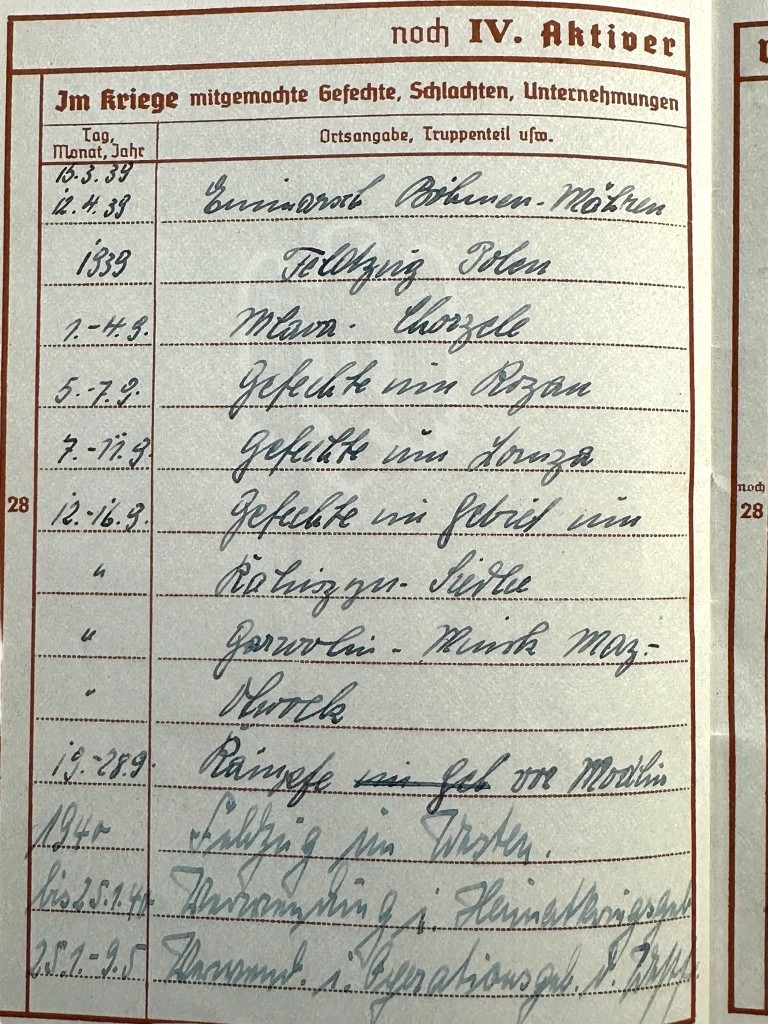 noch IV. Aktiver
Im Kriege mitgemachte Gefechte, Schlachten, Unternehmungen
Tag, Monat, Jahr
Ortsangabe, Truppenteil usw.
15.3.39
12.4.39 Einmarsch Böhmen-Mähren
1939 Feldzug Polen
1.-4.9. Mlava - Chorzele
5.-7.9. Gefechte um Rozan
7.-11.9. Gefechte um Lomza
28
12.-16.9. Gefechte im Gebiet um
" Kaluszyn - Siedlce
" Garwolin - Minsk Maz-
" Otwock
19.-28.9. Kämpfe im Geb vor Modlin
1940 Feldzug im Westen.
bis 25.1.40 Verwendung i. Heimatkriegsgeb
25.1.-9.5 Verwend. i. Operationsgeb. d.
noch
28